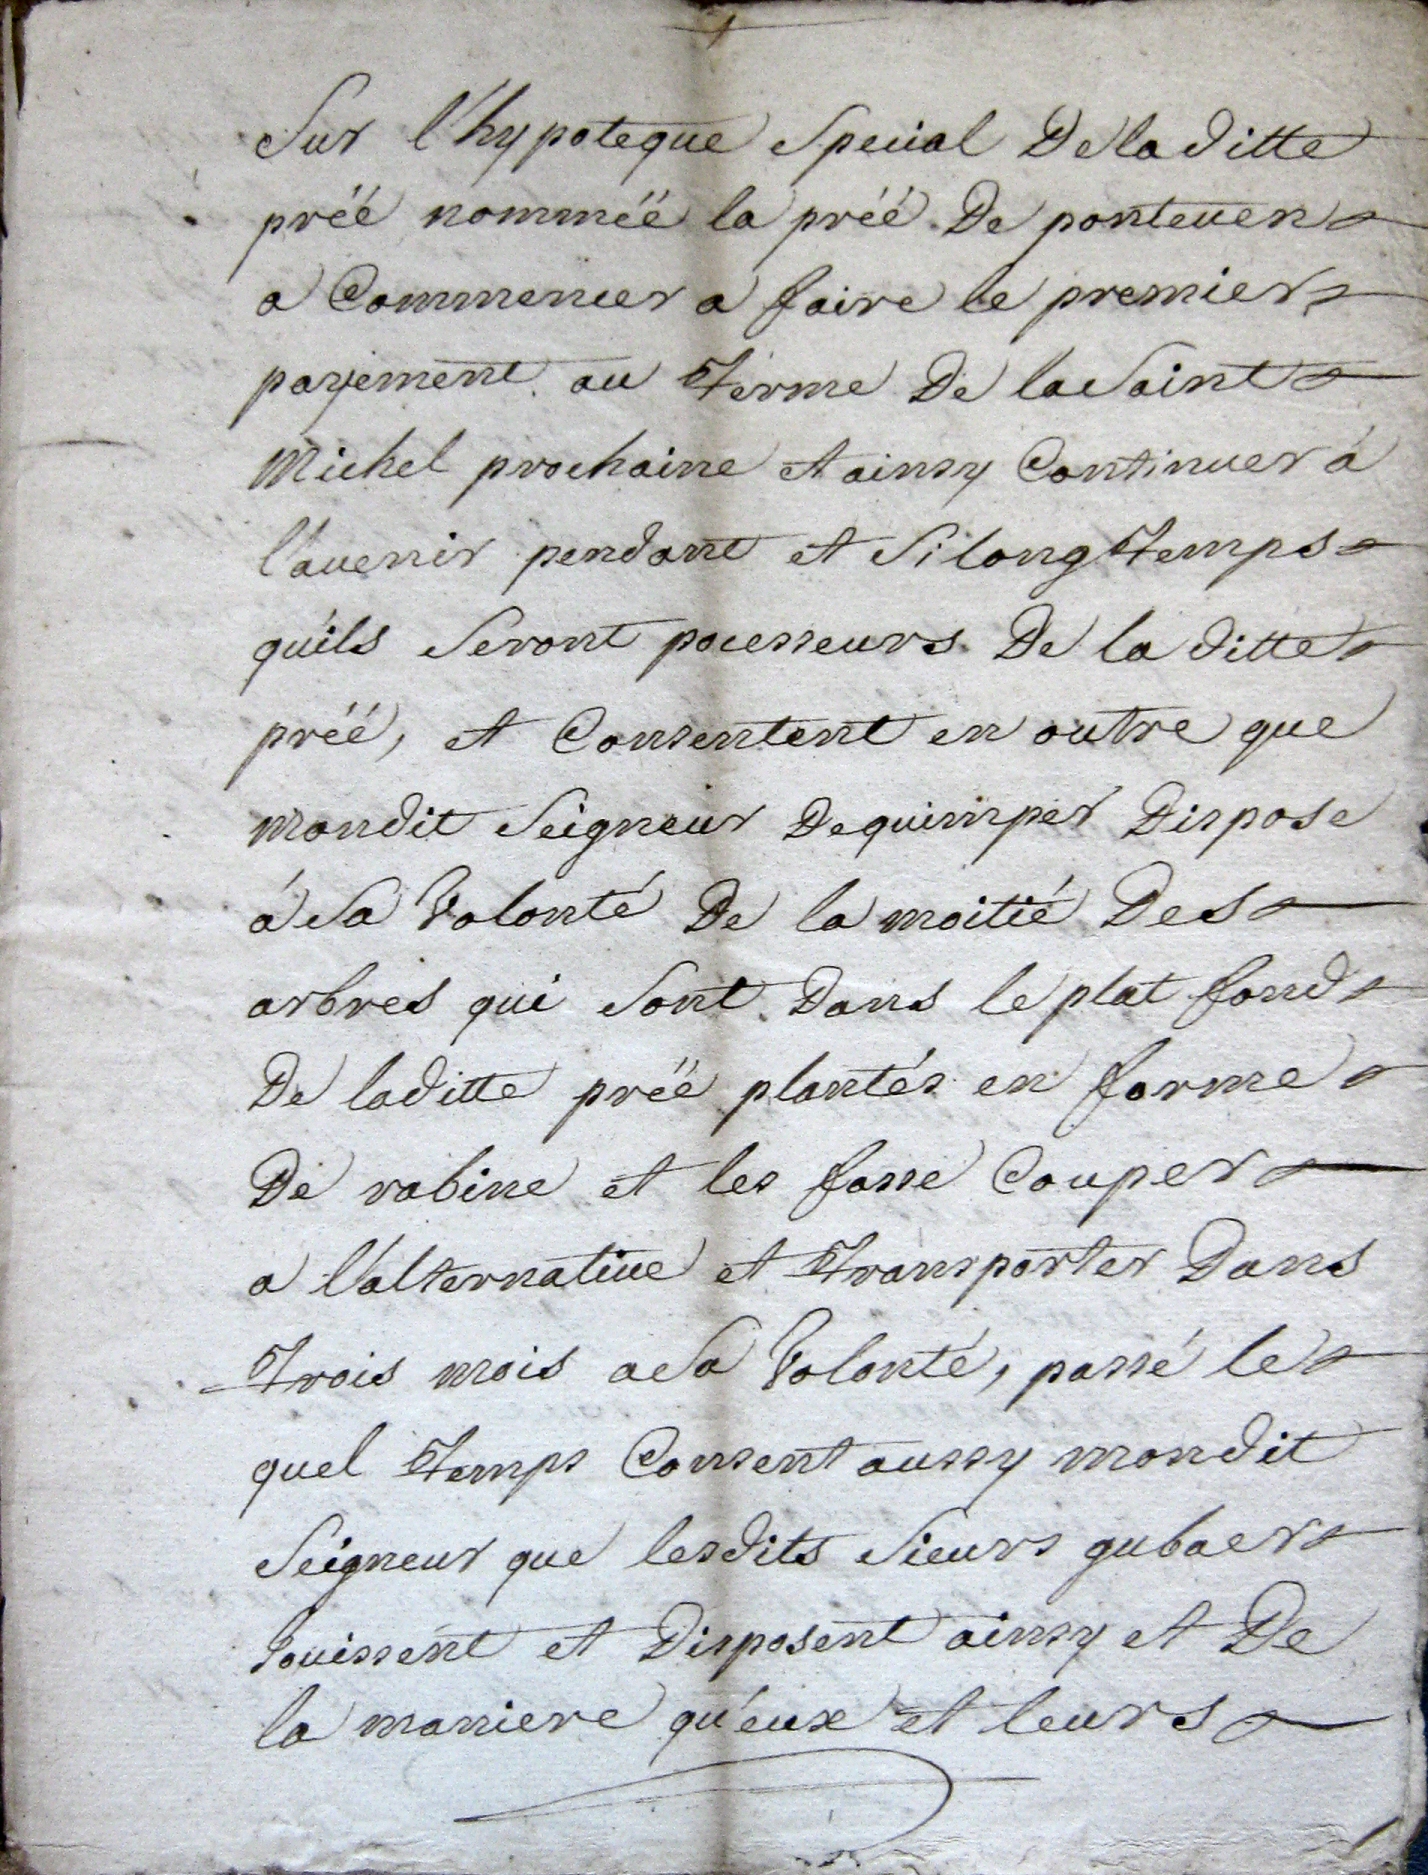 Sur l'hypoteque Special De la ditte
préé nomméé la préé De ponteuen
a Commencer a faire le premier
payement au Terme De la Saint
Michel prochaine et ainsy Continuer á
l'auenir pendant et Si long Temps
qu'ils Seront pocesseurs De la ditte
préé, et Consentent en outre que
mondit Seigneur De quimper Dispose
á Sa Volonté De la moitié Des
arbres qui Sont Dans le plat fond
De laditte préé plantés en forme
De rabine et les fasse Couper
a l'alternatiue et Transporter Dans
Trois mois a Sa Volonté, passé le
quel Temps Consent aussy mondit
Seigneur que lesdits Sieurs gubaer
Jouissent et Disposent ainsy et De
la maniere qu'eux et leurs